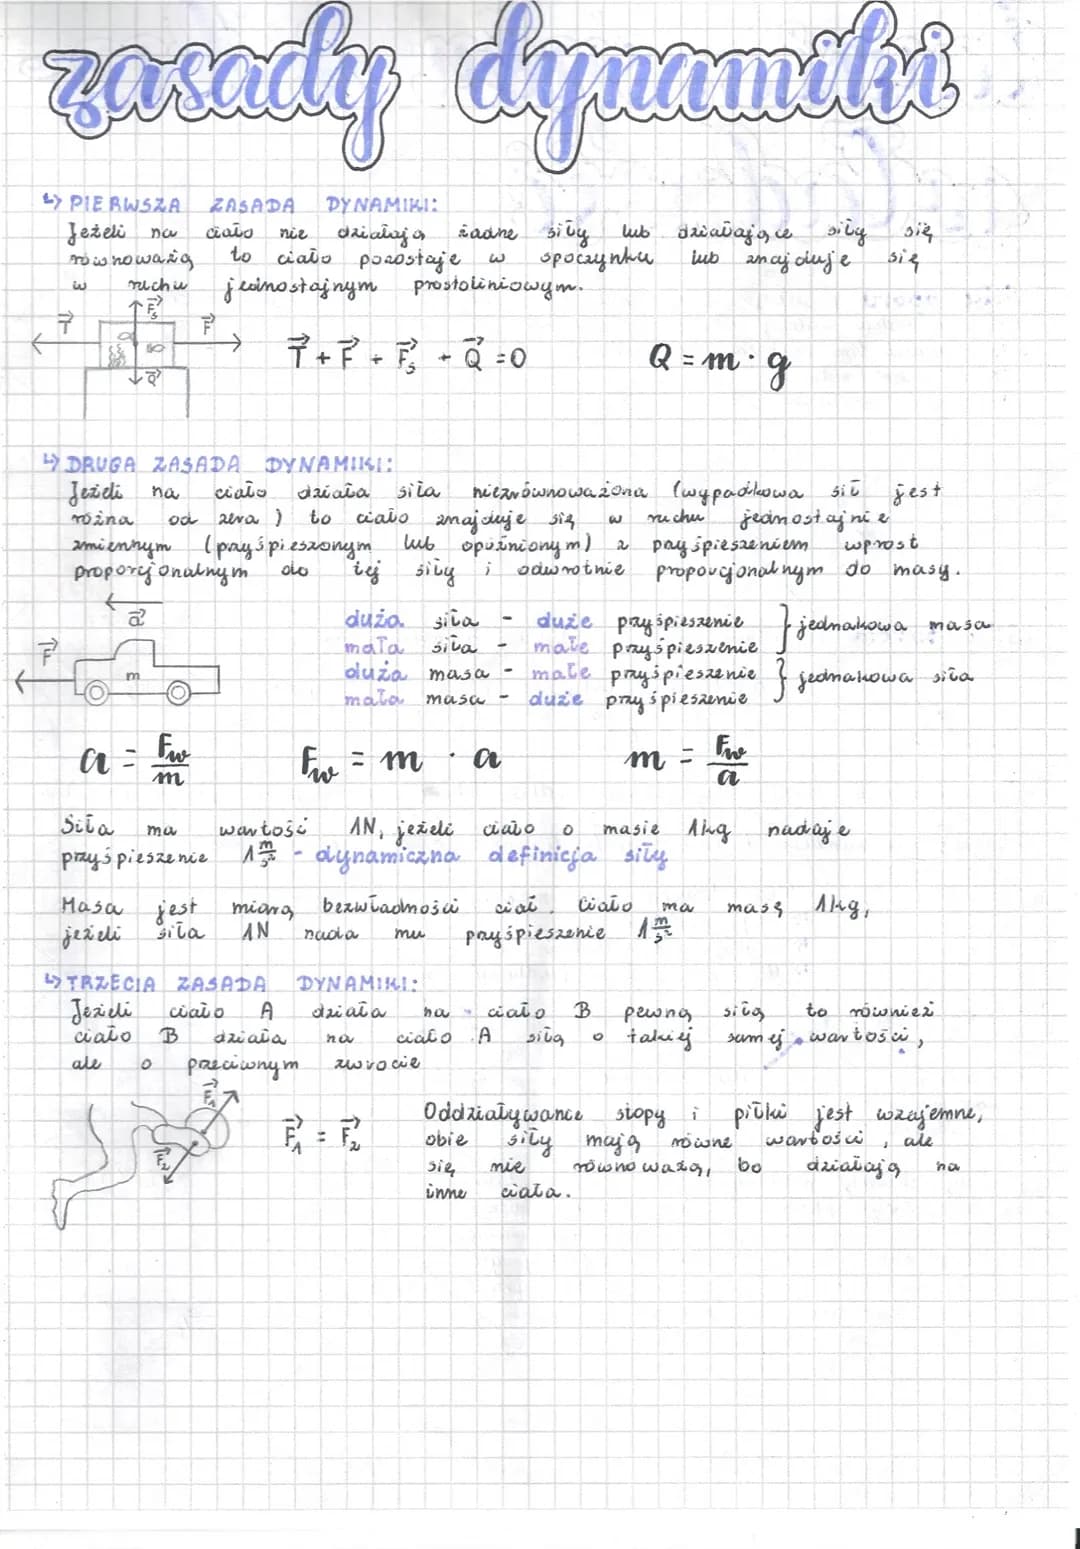 zasady dynamiki
↳ PIERWSZA ZASADA DYNAMIKI:
Jeżeli na ciało nie działają żadne siły lub działające siły się
równoważą to ciało pozostaje w spoczynku lub znajduje się
w ruchu jednostajnym prostoliniowym.
F⃗s
T⃗ F⃗
Q⃗
T⃗ + F⃗ + F⃗s + Q⃗ = 0 Q = m · g
↳ DRUGA ZASADA DYNAMIKI:
Jeżeli na ciało działa siła niezrównoważona (wypadkowa sił jest
różna od zera) to ciało znajduje się w ruchu jednostajnie
zmiennym (przyśpieszonym lub opóźnionym) z przyśpieszeniem wprost
proporcjonalnym do tej siły i odwrotnie proporcjonalnym do masy.
a⃗
F⃗
m
duża siła - duże przyśpieszenie } jednakowa masa
mała siła - małe przyśpieszenie
duża masa - małe przyśpieszenie } jednakowa siła
mała masa - duże przyśpieszenie
a = Fw/m Fw = m · a m = Fw/a
Siła ma wartość 1N, jeżeli ciało o masie 1kg nadaje
przyśpieszenie 1 m/s² - dynamiczna definicja siły
Masa jest miarą bezwładności ciał. Ciało ma masę 1kg,
jeżeli siła 1N nada mu przyśpieszenie 1 m/s²
↳ TRZECIA ZASADA DYNAMIKI:
Jeżeli ciało A działa na ciało B pewną siłą to również
ciało B działa na ciało A siłą o takiej samej wartości,
ale o przeciwnym zwrocie
F⃗1
F⃗2
F⃗1 = F⃗2
Oddziaływanie stopy i piłki jest wzajemne,
obie siły mają równe wartości, ale
się nie równoważą, bo działają na
inne ciała.